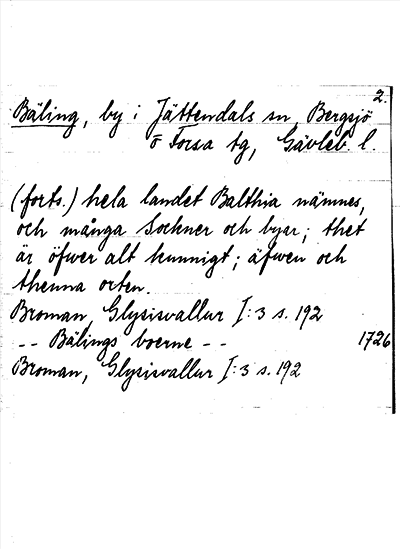 2.
Bäling, by i Jättendals sn, Bergsjö
o Forsa tg, Gävleb l.
(forts.) hela landet Balthia nämnes,
och många Sockner och byar; thet
är öfwer alt kunnigt; äfwen och
thenna orten.
Broman, Glysisvallur I:3 s. 192
-- Bälings boerne -- 1726
Broman, Glysisvallur I:3 s. 192